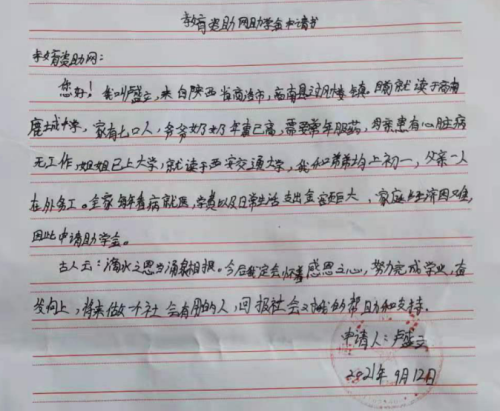 教育资助网助学金申请书
教育资助网：
您好！我叫卢立，来自陕西省商洛市，商南县过风楼镇。目前就读于商南
县城中学，家有七口人，爷爷奶奶年事已高，需要常年服药，母亲患有心脏病
无工作，姐姐已上大学，就读于西安交通大学，我和弟弟均上初一，父亲一人
在外务工。全家每年看病就医，学费以及日常生活支出金额巨大，家庭生活困难
因此申请助学金。
古人云：滴水之恩当涌泉相报。今后我定会怀着感恩之心，努力完成学业，奋
发向上，将来做一个社会有用的人，回报社会对我的帮助和支持。
申请人：卢立
2021年9月12日